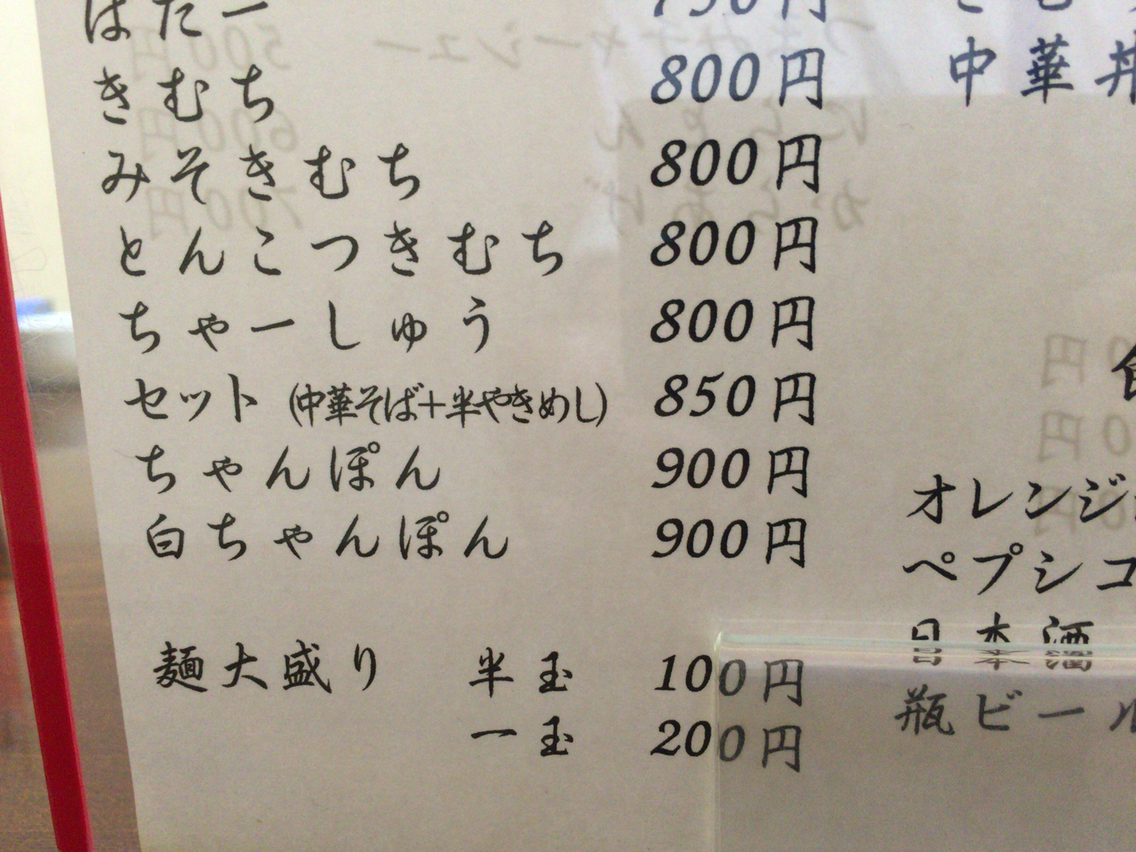 ばたー 750円
きむち 800円
みそきむち 800円
とんこつきむち 800円
ちゃーしゅう 800円
セット (中華そば+半やきめし) 850円
ちゃんぽん 900円
白ちゃんぽん 900円
麺大盛り 半玉 100円
一玉 200円
中華丼
オレンジ
ペプシコ
日本酒
瓶ビール